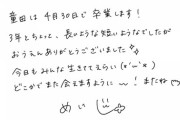 童田は4月30日で卒業します!
3年とちょっと、長いような短いようなでしたが
おうえんありがとうございました
今日もみんな生きててえらい(*'-'*)
どこかでまた会えますように〜!またね♡
めい